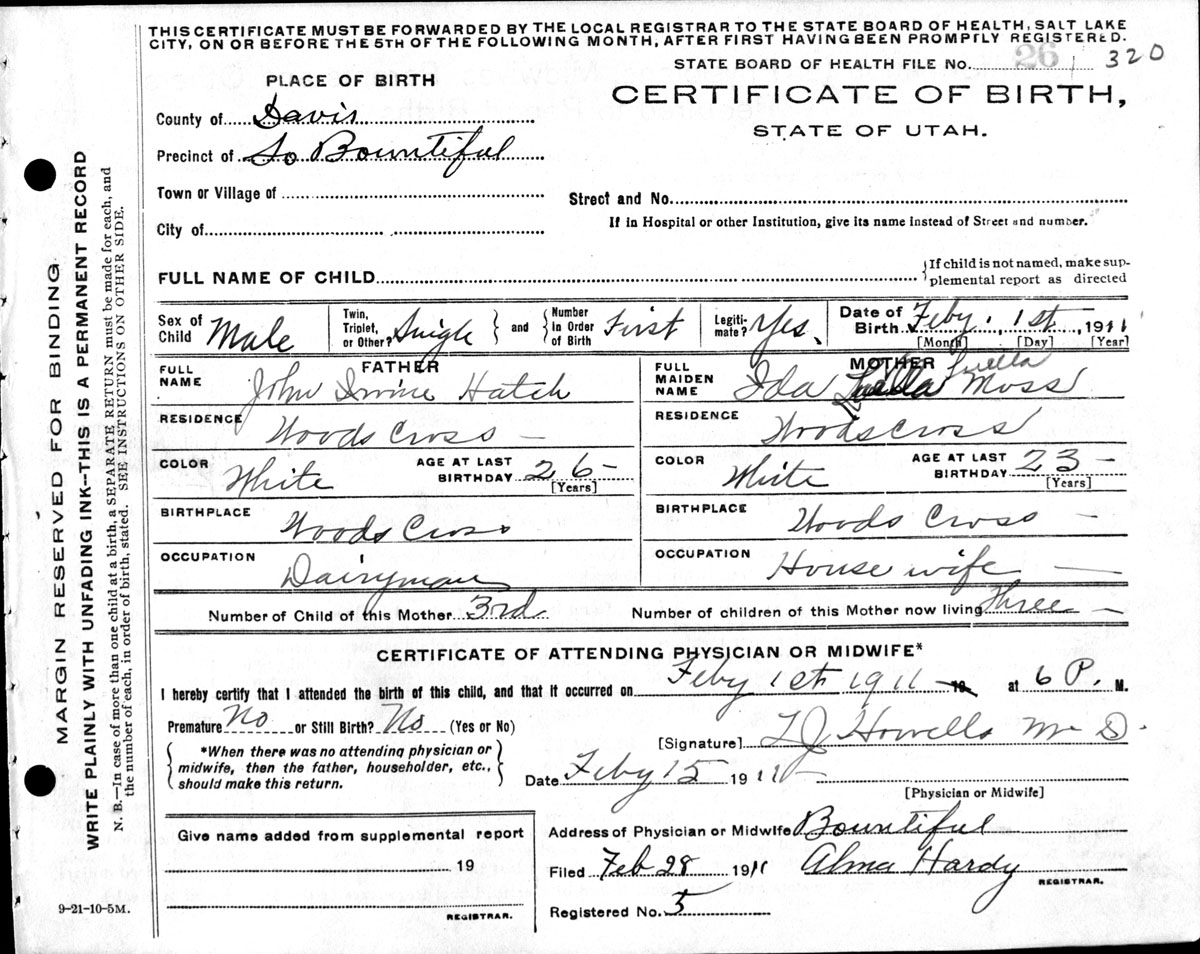 THIS CERTIFICATE MUST BE FORWARDED BY THE LOCAL REGISTRAR TO THE STATE BOARD OF HEALTH, SALT LAKE
CITY, ON OR BEFORE THE 5TH OF THE FOLLOWING MONTH, AFTER FIRST HAVING BEEN PROMPTLY REGISTERED.
STATE BOARD OF HEALTH FILE No. 26 320
PLACE OF BIRTH
CERTIFICATE OF BIRTH,
STATE OF UTAH.
County of Davis
Precinct of So Bountiful
Town or Village of
Street and No.
City of
If in Hospital or other Institution, give its name instead of Street and number.
FULL NAME OF CHILD
{If child is not named, make sup-
plemental report as directed
Sex of Child Male
Twin, Triplet, or Other? Single
and
Number in Order of Birth First
Legiti-mate? Yes.
Date of Birth Feby. 1st, 1911
[Month] [Day] [Year]
FATHER
FULL NAME John Irvine Hatch
RESIDENCE Woods Cross –
COLOR White
AGE AT LAST BIRTHDAY 26 –
[Years]
BIRTHPLACE Woods Cross
OCCUPATION Dairyman
MOTHER
Luella
FULL MAIDEN NAME Ida Moss
RESIDENCE Woods Cross
COLOR White
AGE AT LAST BIRTHDAY 23 –
[Years]
BIRTHPLACE Woods Cross –
OCCUPATION House wife –
Number of Child of this Mother 3rd
Number of children of this Mother now living Three –
CERTIFICATE OF ATTENDING PHYSICIAN OR MIDWIFE*
I hereby certify that I attended the birth of this child, and that it occurred on Feby 1st 1911 – 19 at 6 P. M.
Premature No or Still Birth? No (Yes or No)
{*When there was no attending physician or
midwife, then the father, householder, etc.,
should make this return.}
[Signature] L J Howells M D.
Date Feby 15 1911 –
[Physician or Midwife]
Give name added from supplemental report
19
REGISTRAR.
Address of Physician or Midwife Bountiful
Filed Feb 28 1911 Alma Hardy
REGISTRAR.
Registered No. 5
9-21-10-5M.
MARGIN RESERVED FOR BINDING
WRITE PLAINLY WITH UNFADING INK--THIS IS A PERMANENT RECORD
N. B.—In case of more than one child at a birth, a SEPARATE RETURN must be made for each, and
the number of each, in order of birth, stated. SEE INSTRUCTIONS ON OTHER SIDE.